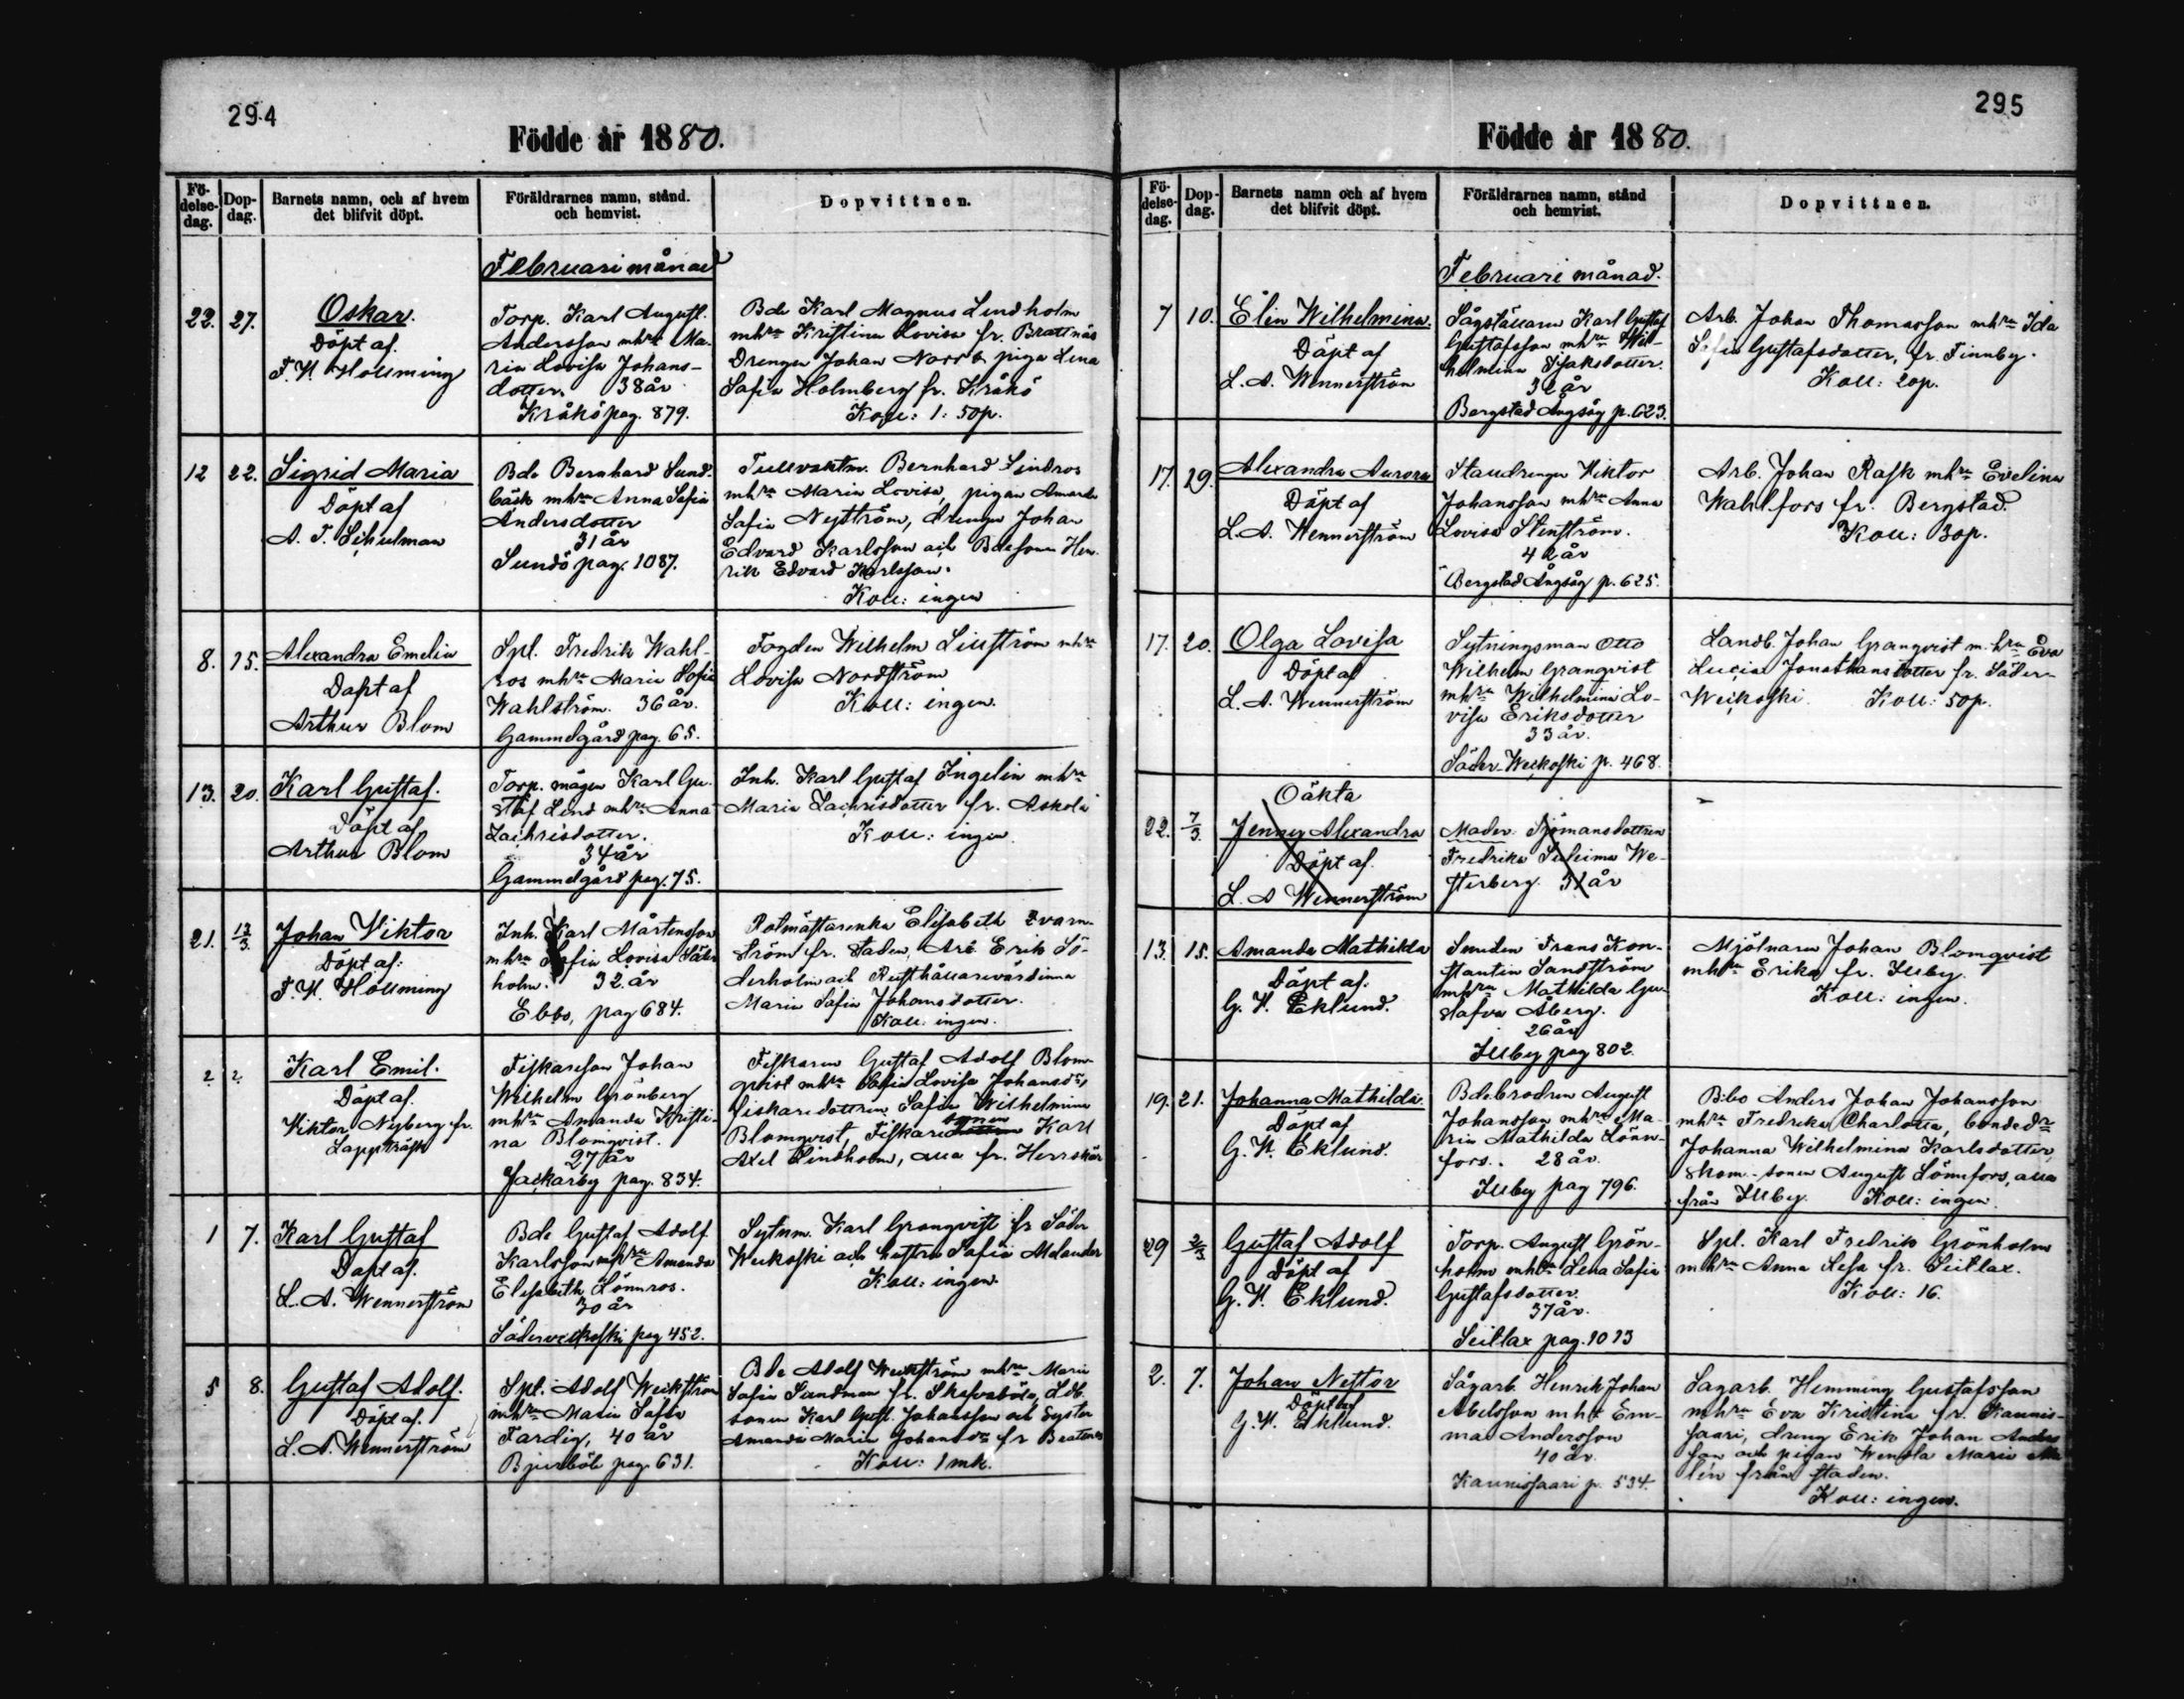 294
Födde år 1880.
Fö-
delse-
dag.
Dop-
dag.
Barnets namn, och af hvem
det blifvit döpt.
Föräldrarnes namn, stånd.
och hemvist.
Dopvittnen.
Februari månad
22. 27.
Oskar.
Döpt af.
F. W. Holming
Torp. Karl August.
Andersson mhru Ma-
ria Lovisa Johans-
dotter. 38 år
Kråkö pag. 879.
Bde Karl Magnus Lindholm
mhru Kristina Lovisa fr. Brattnäs
Drengen Johan Norr & piga Lena
Sofia Holmberg fr. Kråkö
Koll: 1: 50p.
12 22.
Sigrid Maria
Döpt af
A. F. Schulman
Bde Bernhard Sund-
bäck mhru Anna Sofia
Andersdotter
31 år
Sundö pag. 1087.
Tullvaktm. Bernhard Lindros
mhru Maria Lovisa, pigan Amanda
Sofia Nyström, drengen Johan
Edvard Karlsson och Bdesonen Hen-
rik Edvard Karlsson.
Koll: ingen
8. 15.
Alexandra Emelia
Döpt af
Arthur Blom
Spl. Fredrik Wahl-
ros mhru Maria Sofia
Wahlström. 36 år.
Gammelgård pag. 65.
Fogden Wilhelm Liufström mhru
Lovisa Nordström
Koll: ingen.
13. 20.
Karl Gustaf.
Döpt af
Arthur Blom
Torp. mågen Karl Gu-
staf Lind mhru Anna
Zachrisdotter.
34 år
Gammelgård pag. 75.
Inh. Karl Gustaf Ingelin mhru
Maria Zachrisdotter fr. Askola
Koll: ingen
21. 12/3.
Johan Viktor
Döpt af:
F. W. Holming
Inh. Karl Mårtensson
mhru Sofia Lovisa Söder-
holm. 32 år
Ebbo, pag 684.
Rotmästarenka Elisabeth Qvarn-
ström fr. staden, Arb. Erik Sö-
derholm och Rusthållarevärdinna
Maria Sofia Johansdotter.
Koll: ingen.
2 2.
Karl Emil.
Döpt af.
Viktor Nyberg fr.
Lappträsk
Fiskareson Johan
Wilhelm Grönberg
mhru Amanda Kristi-
na Blomqvist.
27 år
Jackarby pag. 834.
Fiskaren Gustaf Adolf Blom-
qvist mhru Maria Lovisa Johansdr,
fiskaredottren Sofia Wilhelmina
Blomqvist, Fiskaresonen Karl
Axel Lindholm, alla fr. Herrskär
1 7.
Karl Gustaf
Döpt af.
L. A. Wennerström
Bde Gustaf Adolf
Karlsson mhru Amanda
Elisabeth Lönnros.
30 år
Söderveckoski pag 452.
Sytnm. Karl Granqvist fr Söder
Weckoski och hustru Sofia Melander
Koll: ingen.
5 8.
Gustaf Adolf.
Döpt af.
L. A. Wennerström
Spl. Adolf Weckström
mhru Maria Sofia
Fardig, 40 år
Bjurböle pag. 631.
Bde Adolf Weckström mhru Maria
Sofia Sundman fr. Skafvaböle, Ldb.
sonen Karl Gust. Johansson och Syster
Amanda Maria Johansdr fr Brattnäs
Koll: 1 mk.
295
Födde år 1880.
Fö-
delse-
dag.
Dop-
dag.
Barnets namn och af hvem
det blifvit döpt.
Föräldrarnes namn, stånd
och hemvist.
Dopvittnen.
Februari månad.
7 10.
Elin Wilhelmina.
Döpt af
L. A. Wennerström
Sågställaren Karl Gustaf
Gustafsson mhru Wil-
helmina Isaksdotter.
32 år
Bergstad Ångsåg p. 623.
Arb. Johan Thomasson mhru Ida
Sofia Gustafsdotter, fr. Finnby.
Koll: 20p.
17. 29.
Alexandra Aurora
Döpt af
L. A. Wennerström
Staudrengen Viktor
Johansson mhru Anna
Lovisa Stenström.
42 år
Bergstad Ångsåg p. 625.
Arb. Johan Rask mhru Evelina
Wahlfors fr. Bergstad.
Koll: 30p.
17. 20.
Olga Lovisa
Döpt af
L. A. Wennerström
Sytningsman Otto
Wilhelm Granqvist
mhru Wilhelmina Lo-
visa Eriksdotter
33 år.
Söder-Weckoski p. 468.
Landb. Johan Granqvist m. hru Eva
Lucia Jonathansdotter fr. Söder-
Weckoski. Koll: 50p.
Oäkta
22. 7/3.
Jenny Alexandra
Döpt af.
L. A Wennerström
Moder: Sjömansdottren
Fredrika Seleima We-
sterberg. 31 år
13. 15.
Amanda Mathilda
Döpt af:
G. W. Eklund.
Smeden Frans Kon-
stantin Sandström
mhru Mathilda Gu-
stafva Åberg.
26 år
Illby pag 802.
Mjölnaren Johan Blomqvist
mhru Erika fr. Illby.
Koll: ingen.
19. 21.
Johanna Mathilda.
Döpt af
G. W. Eklund.
Bdebrodren August
Johansson mhru Ma-
ria Mathilda Lönn-
fors. 28 år.
Illby pag 796.
Bde Anders Johan Johansson
mhru Fredrika Charlotta, bondedr
Johanna Wilhelmina Karlsdotter,
skom. sonen August Lönnfors, alla
från Illby. Koll: ingen.
29 2/3.
Gustaf Adolf
Döpt af
G. W. Eklund.
Torp. August Grön-
holm mhru Lena Sofia
Gustafsdotter.
37 år.
Seitlax pag. 1013
Spl. Karl Fredrik Grönholm
mhru Anna Lesa fr. Seitlax.
Koll: 16.
2. 7.
Johan Nestor
Döpt af
G. W. Eklund.
Sågarb. Henrik Johan
Abelsson mhr Em-
ma Andersson
40 år.
Kaunissaari p. 534.
Sagarb. Hemming Gustafsson
mhru Eva Kristina fr. Kaunis-
saari, dreng Erik Johan Anders
son och pigan Wendla Maria
lén från staden.
Koll: ingen.